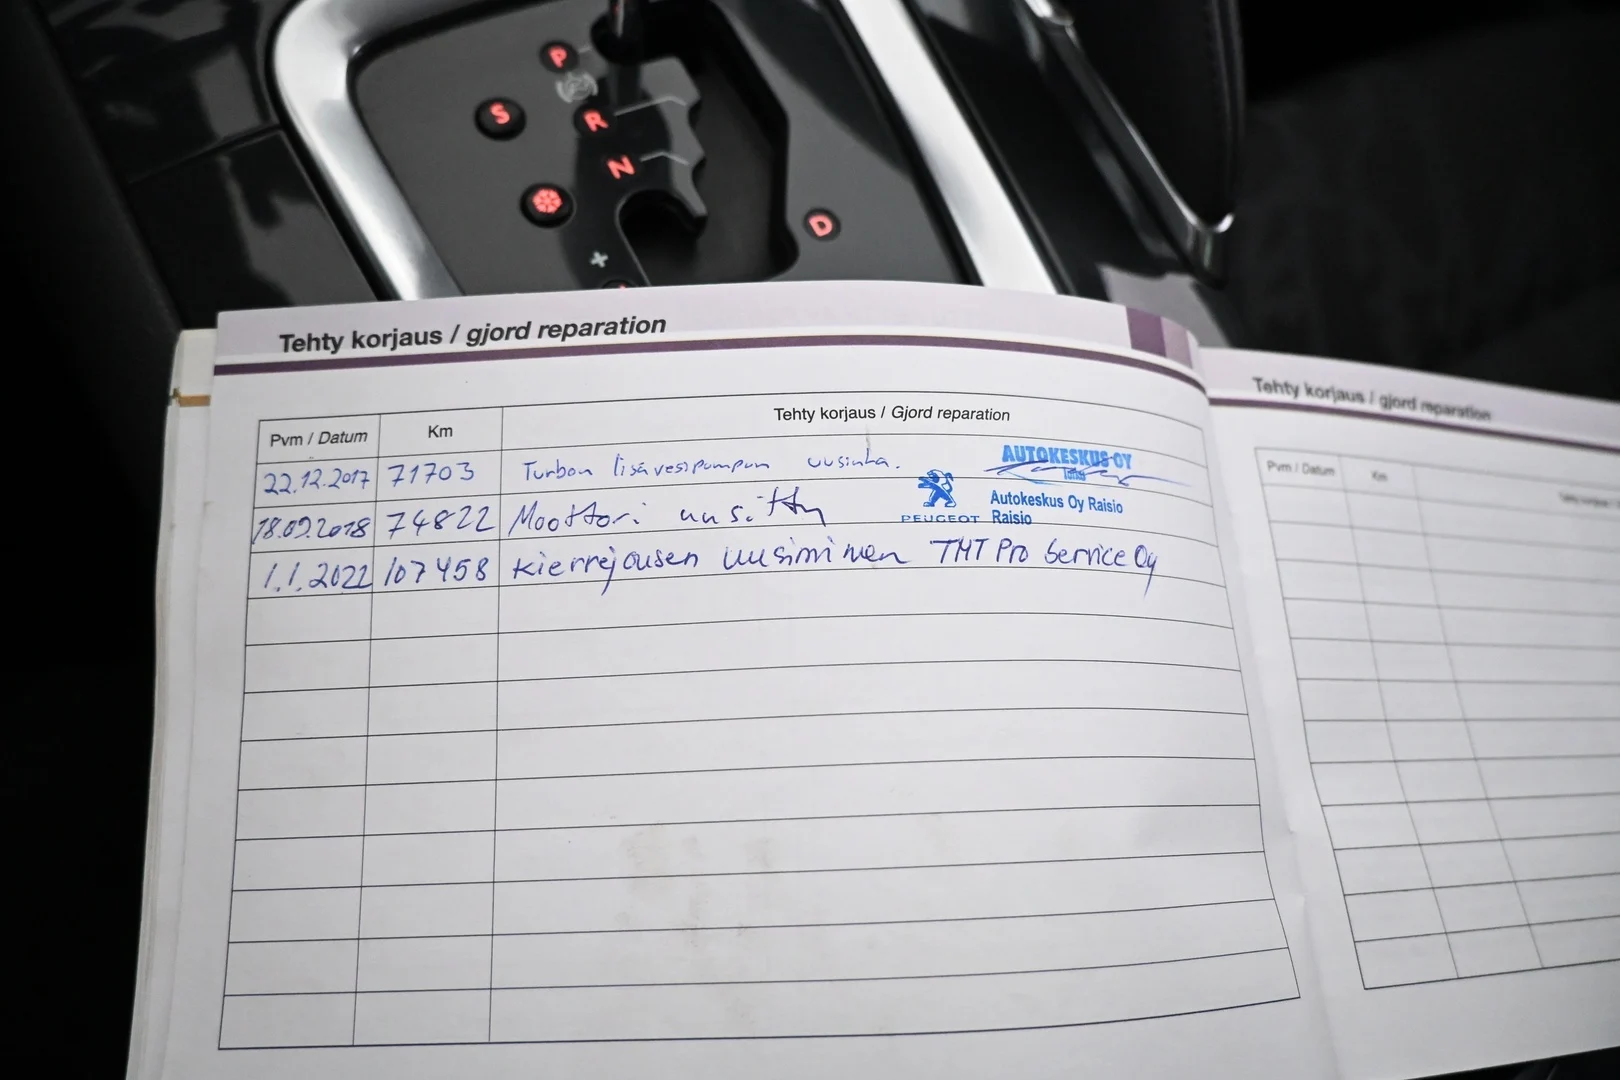 P
S
R
N
D
+
Tehty korjaus / gjord reparation
Pvm / Datum Km Tehty korjaus / Gjord reparation
22.12.2017 71703 Turbon lisävesipumpun uusinta. AUTOKESKUS OY
18.09.2018 74822 Moottori uusittu PEUGEOT Autokeskus Oy Raisio
Raisio
1.1.2022 107458 Kierrejousen uusiminen TMT Pro Service Oy
Tehty korjaus / gjord reparation
Pvm / Datum Km